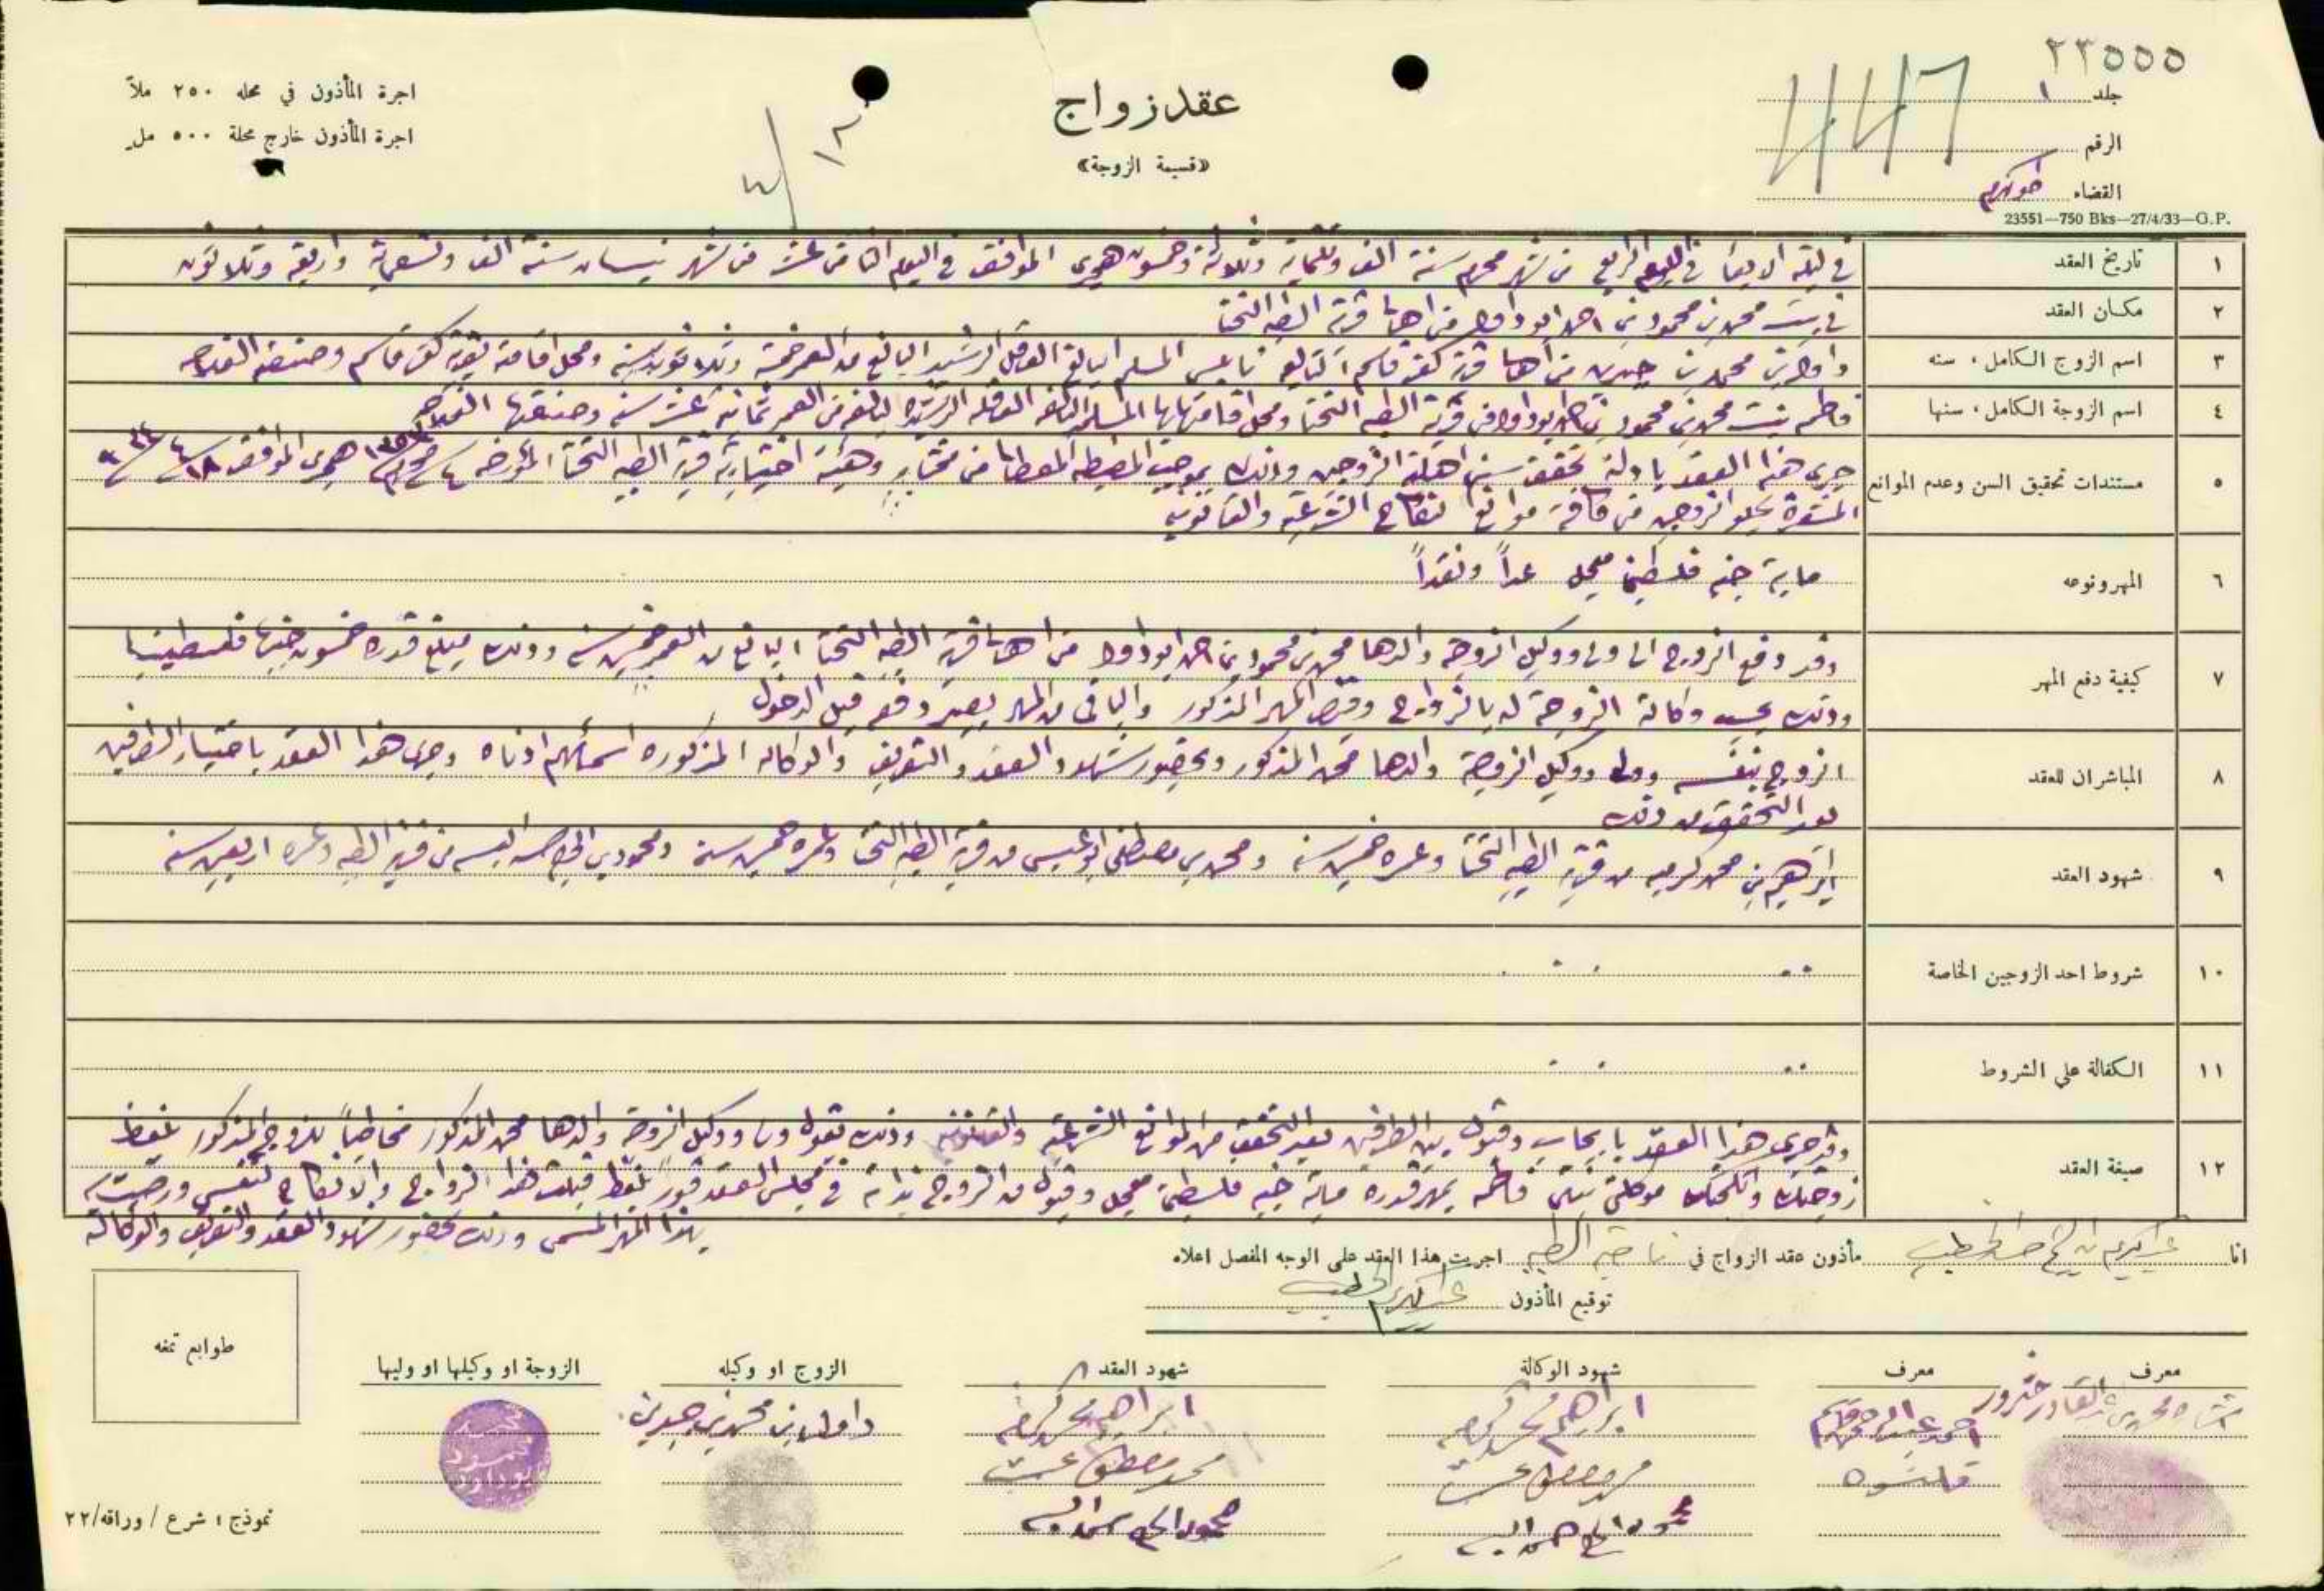 ٢٣٥٥٥
جلد ١
الرقم ٤٤٦
القضاء طولكرم
23551—750 Bks—27/4/33—G.P.
عقد زواج
«قسيمة الزوجة»
١٣
اجرة المأذون في محله ٢٥٠ ملاً
اجرة المأذون خارج محلة ٥٠٠ مل
١ تاريخ العقد في ليلة الاربعا في اليوم الرابع من شهر محرم سنة الف وثلثماية وثلاثة وخمسون هجري الموافق في اليوم الثامن عشر من شهر نيسان سنة الف وتسعماية واربعة وثلاثون
٢ مكان العقد في بيت محمد بن محمود بن احمد ابو داود من اهالي قرية الطيبه التحتا
٣ اسم الزوج الكامل، سنه داود بن محمد بن حمدان من اهالي قرية كفر قاسم التابع نابلس المسلم البالغ العاقل الرشيد البالغ من العمر خمسة وثلاثون سنة ومحل اقامته بقرية كفر قاسم وصنعته الفلاحه
٤ اسم الزوجة الكامل، سنها فاطمه بنت محمد بن محمود بن احمد ابو داود من قرية الطيبه التحتا ومحل اقامتها بها المسلمه البالغه العاقله الرشيده البالغه من العمر ثمانية عشر سنه وصنعتها الفلاحه
٥ مستندات تحقيق السن وعدم الموانع جرى هذا العقد بادلة تحقق سن اهلية الزوجين وذلك بموجب المضبطه المعطاه من مختار وهيئة اختيارية قرية الطيبه التحتا المؤرخه ٤ محرم ١٣٥٣ هجري الموافق ١٨/٤/٩٣٤
المشعرة بخلو الزوجين من كافة موانع النكاح الشرعية والقانونيه
٦ المهر ونوعه ماية جنيه فلسطيني معجل عداً ونقداً
٧ كيفية دفع المهر وقد دفع الزوج الى ولي ووكيل الزوجه والدها محمد بن محمود بن احمد ابو داود من اهالي قرية الطيبه التحتا البالغ من العمر خمسين سنه وذلك مبلغ قدره خمسون جنيها فلسطينيا
وذلك بحسب وكالة الزوجة له بالزواج وقبض المهر المذكور والباقي من المهر يصير دفعه قبل الدخول
٨ المباشران للعقد الزوج بنفسه وولي ووكيل الزوجة والدها محمد المذكور وبحضور شهود العقد والتعريف والوكاله المذكوره اسمائهم ادناه وجرى هذا العقد باختيار الطرفين
بعد التحقق من ذلك
٩ شهود العقد ابراهيم بن محمد كريم من قرية الطيبه التحتا وعمره خمسين سنه ومحمد بن مصطفى ابو عيسى من قرية الطيبه التحتا وعمره خمسين سنه ومحمود بن الحاج من قرية الطيبه وعمره اربعين سنه
١٠ شروط احد الزوجين الخاصة
١١ الكفالة على الشروط
١٢ صيغة العقد وقد جرى هذا العقد بايجاب وقبول بين الطرفين بعد التحقق من الموانع الشرعية والقانونيه وذلك بقول ولي ووكيل الزوجه والدها محمد المذكور مخاطباً للزوج المذكور بلفظ
زوجتك وانكحتك موكلتي بنتي فاطمه بمهر قدره ماية جنيه فلسطيني معجل وقبول من الزوج بذاته في مجلس العقد فوراً بلفظ قبلت هذا الزواج والانكاح لنفسي ورضيت به
بهذا المهر المسمى وذلك بحضور شهود العقد والتعريف والوكالة
انا عبد الكريم الخطيب مأذون عقد الزواج في ناحية الطيبه اجريت هذا العقد على الوجه المفصل اعلاه
توقيع المأذون عبد الكريم الخطيب
معرف
معرف
شهود الوكالة
شهود العقد
الزوج او وكيله
الزوجة او وكيلها او وليها
طوابع تمغه
ابراهيم محمد
ابراهيم محمد
داود بن محمد بن حمدان
محمد مصطفى
محمد مصطفى
محمود الحاج
محمود الحاج
نموذج ١ شرع / وراقه/٢٢